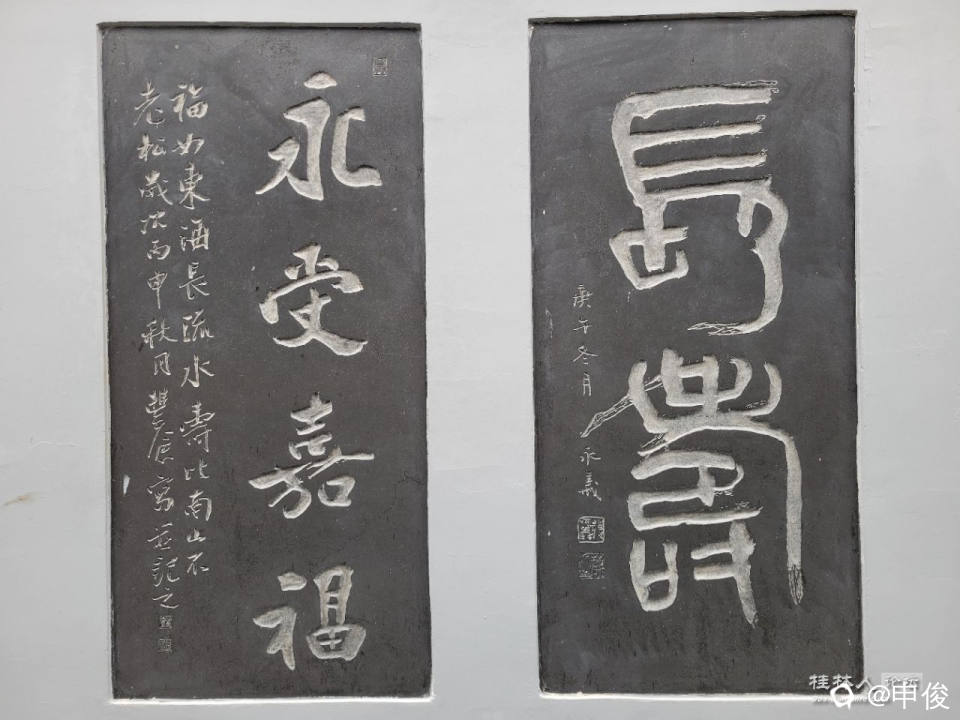 長壽
庚午冬月
永義
永受嘉福
福如東海長流水壽比南山不
老松歲次丙申秋月豐倉寫並記之
桂林人论坛
@申俊